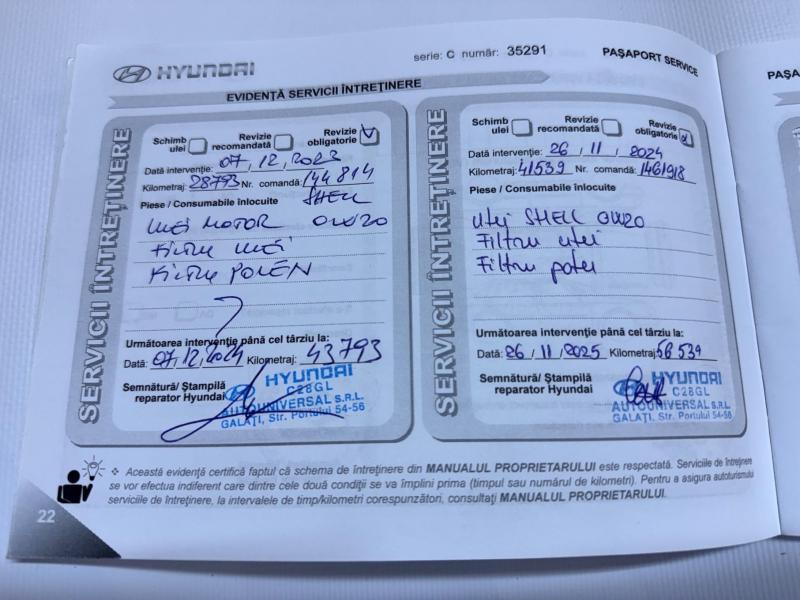 HYUNDAI
serie: C număr: 35291
PAȘAPORT SERVICE
PAȘA
EVIDENȚĂ SERVICII ÎNTREȚINERE
SERVICII ÎNTREȚINERE
Schimb ulei
Revizie recomandată
Revizie obligatorie
Dată intervenție: 07, 12, 2023
Kilometraj: 28793 Nr. comandă: 144 814
Piese / Consumabile înlocuite SHELL
ULEI MOTOR 0W20
FILTRU ULEI
FILTRU POLEN
Următoarea intervenție până cel târziu la:
Dată: 07, 12, 2024 Kilometraj: 43793
Semnătură/ Ștampilă
reparator Hyundai
HYUNDAI
C28GL
AUTOUNIVERSAL S.R.L.
GALAȚI, Str. Portului 54-56
SERVICII ÎNTREȚINERE
Schimb ulei
Revizie recomandată
Revizie obligatorie
Dată intervenție: 26 / 11 / 2024
Kilometraj: 41539 Nr. comandă: 1461918
Piese / Consumabile înlocuite
Ulei SHELL 0W20
Filtru ulei
Filtru
Următoarea intervenție până cel târziu la:
Dată: 26 / 11 / 2025 Kilometraj: 56539
Semnătură/ Ștampilă
reparator Hyundai
HYUNDAI
C28GL
AUTOUNIVERSAL S.R.L.
GALAȚI, Str. Portului 54-56
❖ Această evidență certifică faptul că schema de întreținere din MANUALUL PROPRIETARULUI este respectată. Serviciile de întreținere
se vor efectua indiferent care dintre cele două condiții se va împlini prima (timpul sau numărul de kilometri). Pentru a asigura autoturismului
serviciile de întreținere, la intervalele de timp/kilometri corespunzători, consultați MANUALUL PROPRIETARULUI.
22